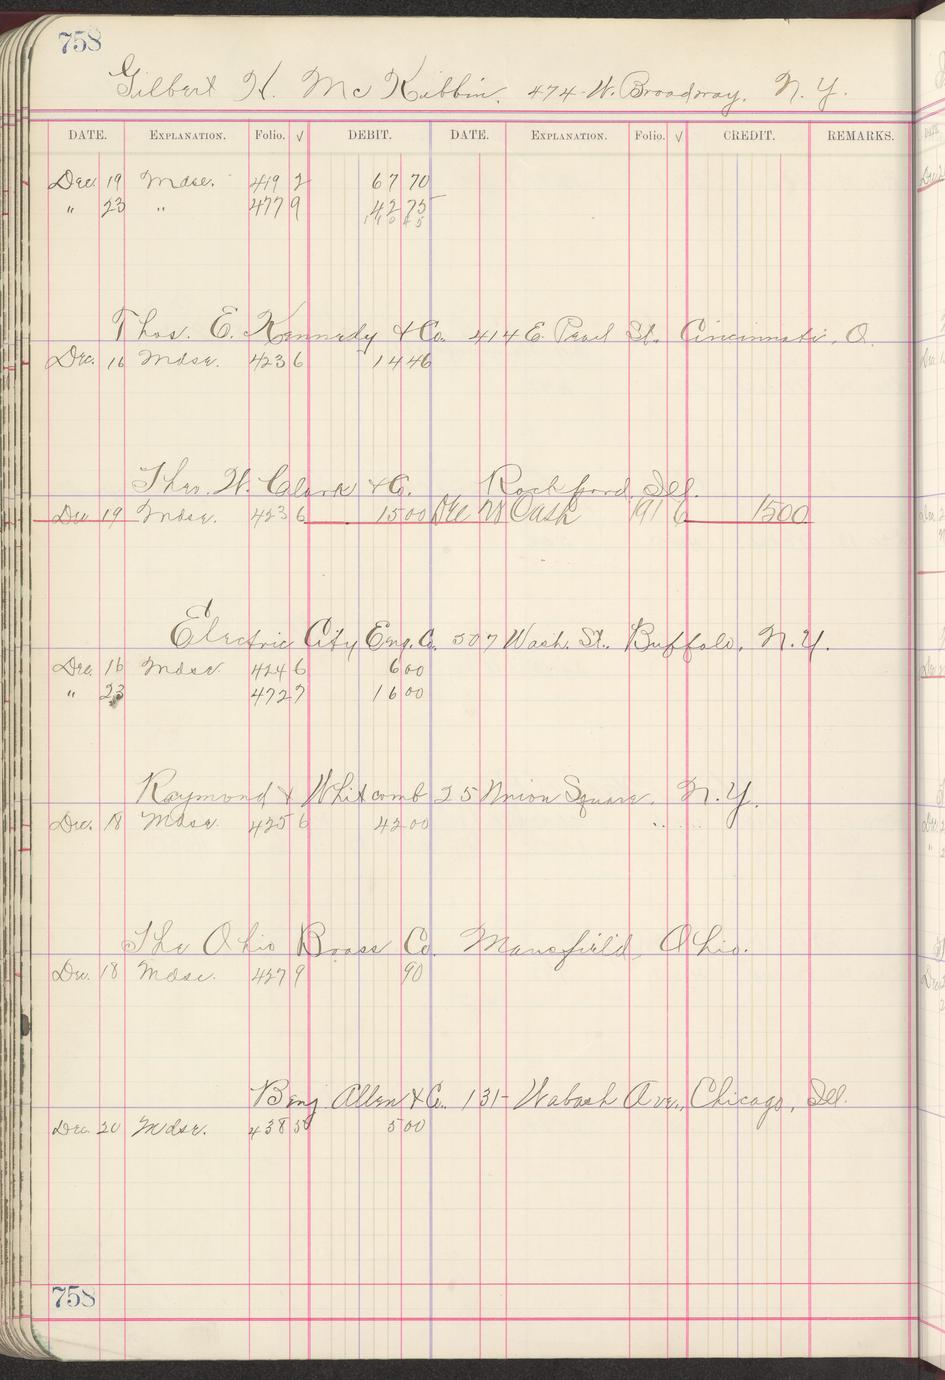 758
Gilbert H. McKibbin. 474 W. Broadway. N.Y.
DATE. EXPLANATION. Folio. √ DEBIT. DATE. EXPLANATION. Folio. √ CREDIT. REMARKS.
Dec. 19 Mdse. 419 2 67 70
" 23 " 477 9 42 75
110 45
Thos. E. Kennedy & Co. 414 E. Pearl St. Cincinnati, O.
Dec. 16 Mdse. 423 6 14 46
Thos. W. Clark & Co. Rockford, Ill.
Dec 19 Mdse. 423 6 15 00 Dec Cash 191 6 15 00
Electric City Eng. Co. 507 Wash. St. Buffalo, N.Y.
Dec. 16 Mdse 424 6 6 00
" 23 472 7 16 00
Raymond & Whitcomb 25 Union Square, N.Y.
Dec. 18 Mdse. 425 6 42 00
The Ohio Brass Co. Mansfield, Ohio.
Dec. 18 Mdse. 427 9 90
Benj. Allen & Co. 131- Wabash Ave., Chicago, Ill.
Dec. 20 Mdse. 438 5 00
758